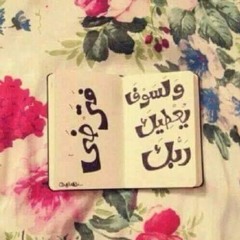 ولسوف
يُعْطيك
ربك
فترضى